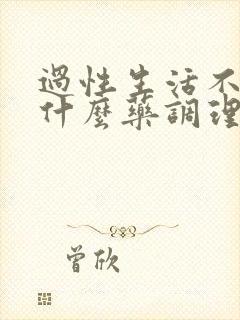 過性生活不
什麼藥調理
曾欣